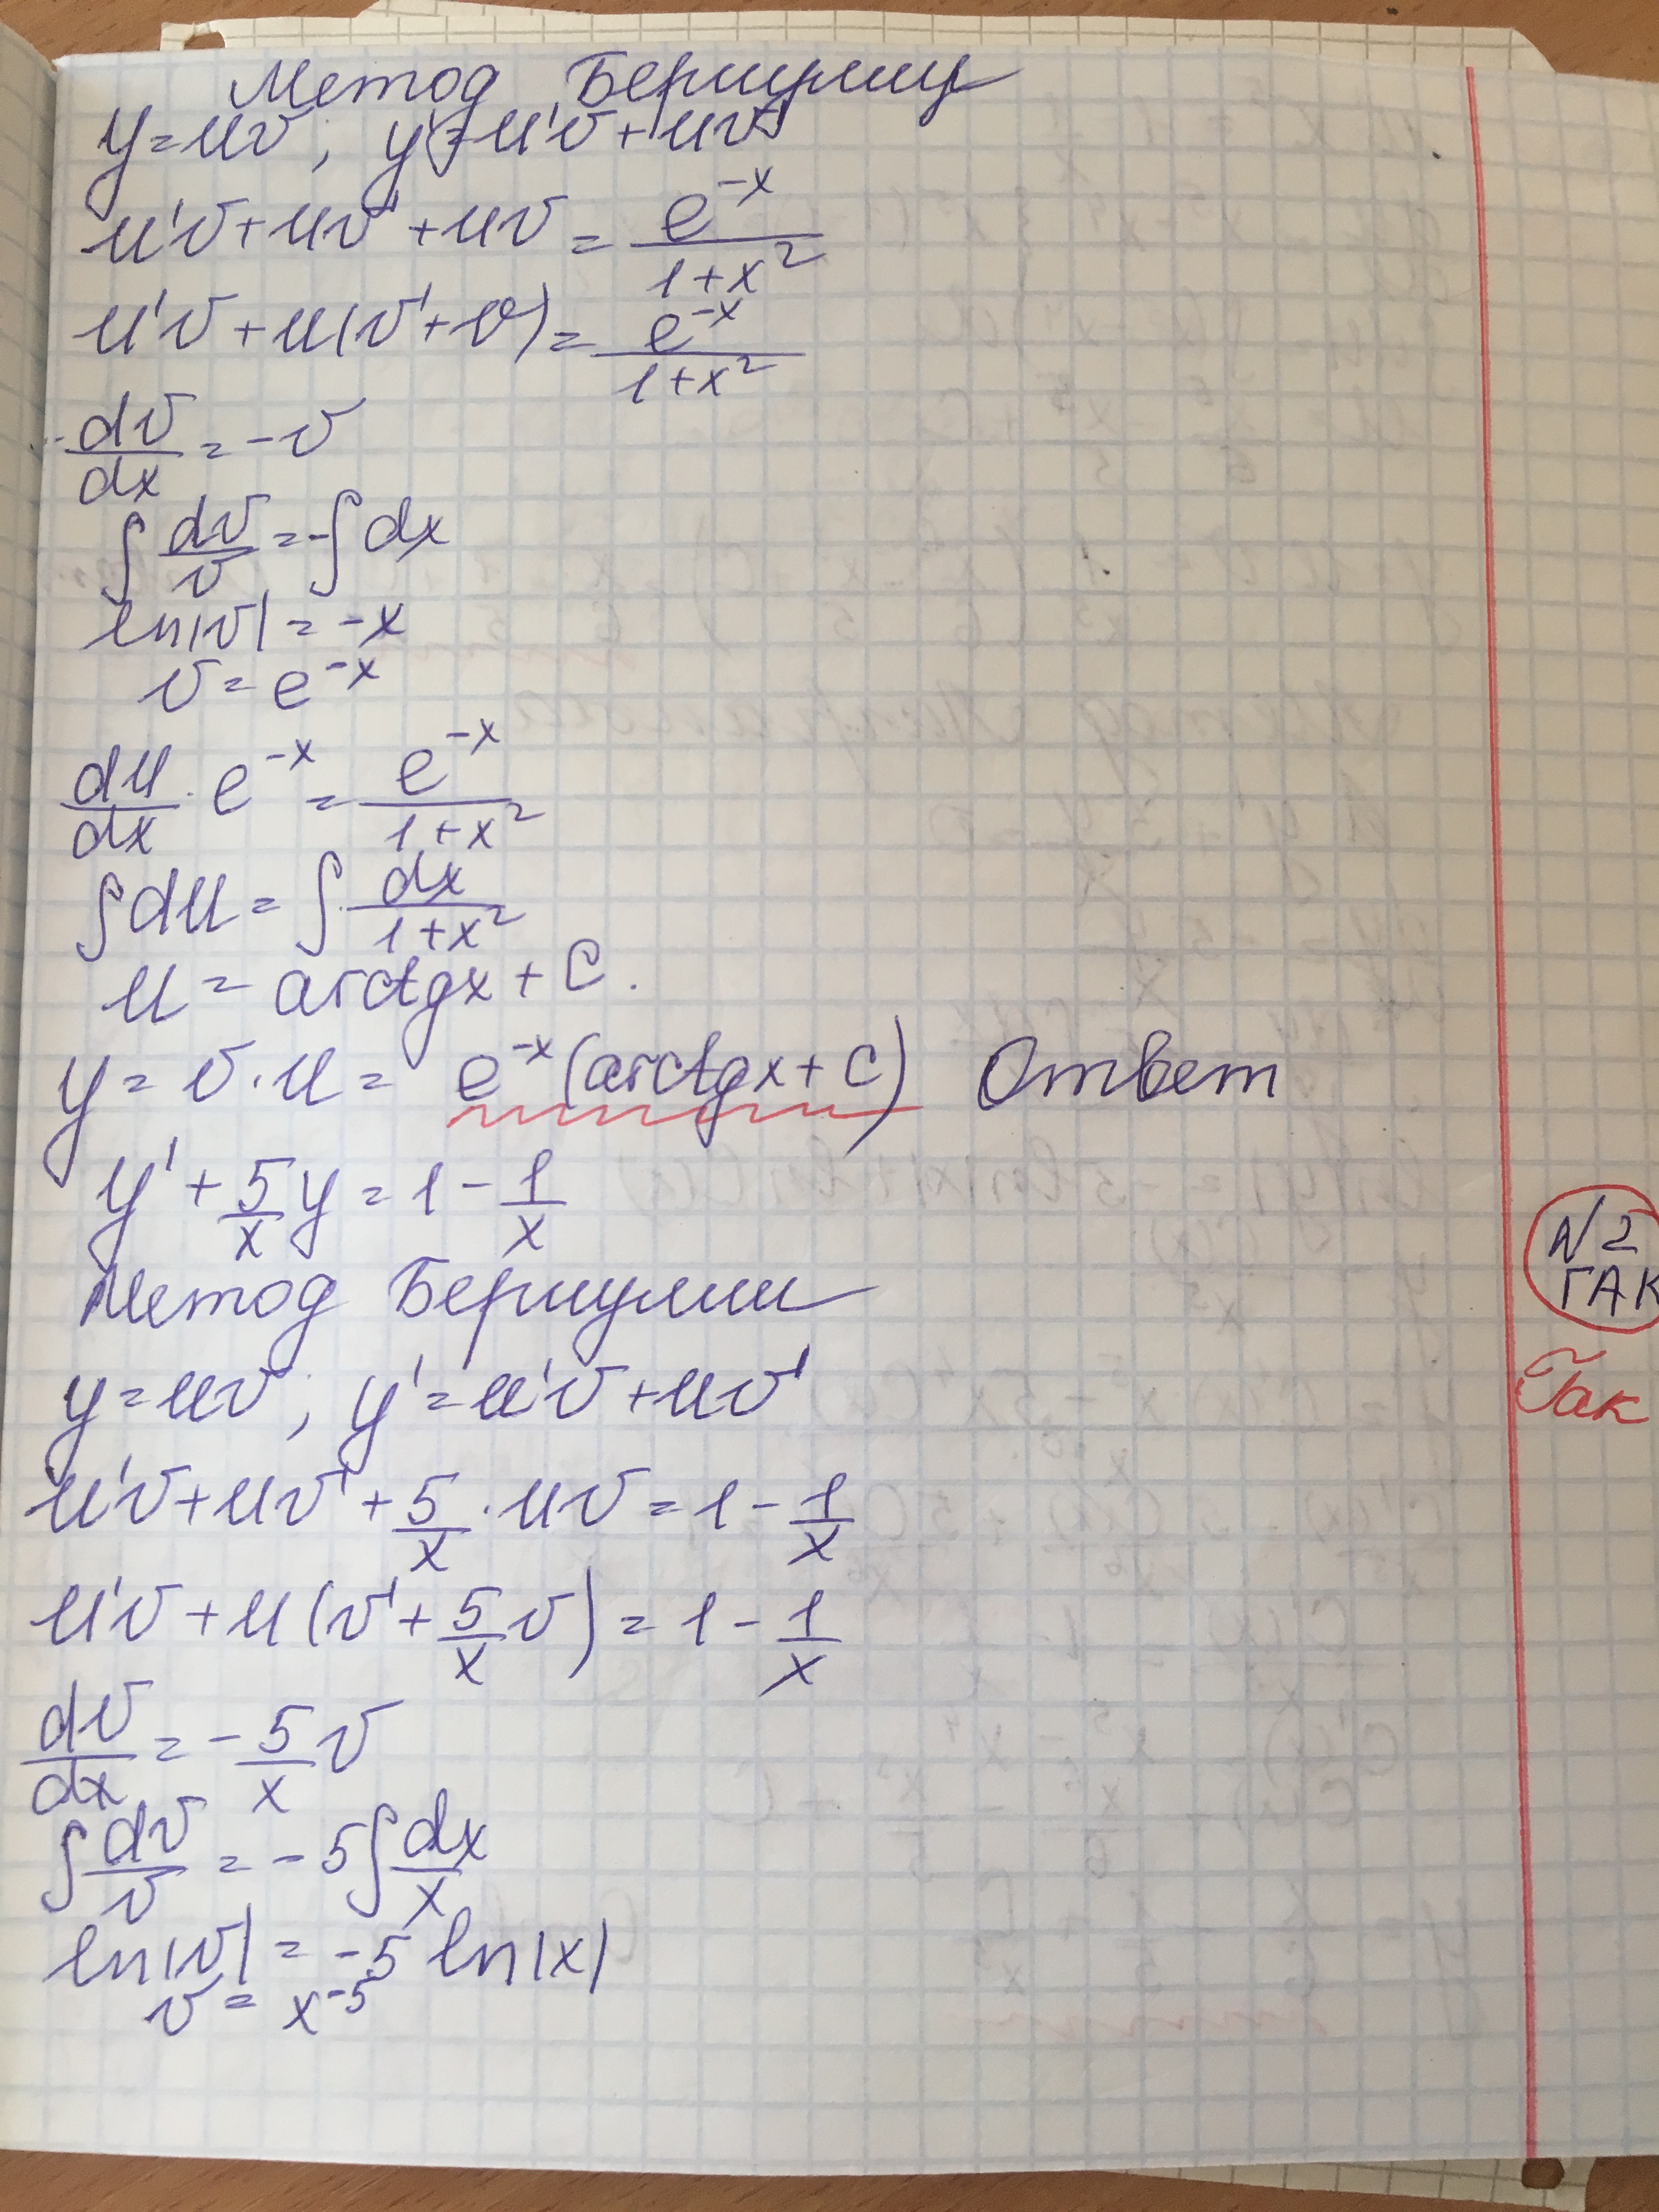 Метод Бернулли
y = uv; y' = u'v + uv'
u'v + uv' + uv = e^{-x}/(1+x²)
u'v + u(v' + v) = e^{-x}/(1+x²)
dv/dx = -v
∫ dv/v = -∫ dx
ln|v| = -x
v = e^{-x}
du/dx · e^{-x} = e^{-x}/(1+x²)
∫ du = ∫ dx/(1+x²)
u = arctgx + C.
y = v·u = e^{-x}(arctgx + C) Ответ
y' + 5/x y = 1 - 1/x
N2
ГАК
Гак
Метод Бернулли
y = uv; y' = u'v + uv'
u'v + uv' + 5/x · uv = 1 - 1/x
u'v + u(v' + 5/x v) = 1 - 1/x
dv/dx = - 5/x v
∫ dv/v = -5∫ dx/x
ln|v| = -5 ln|x|
v = x^{-5}